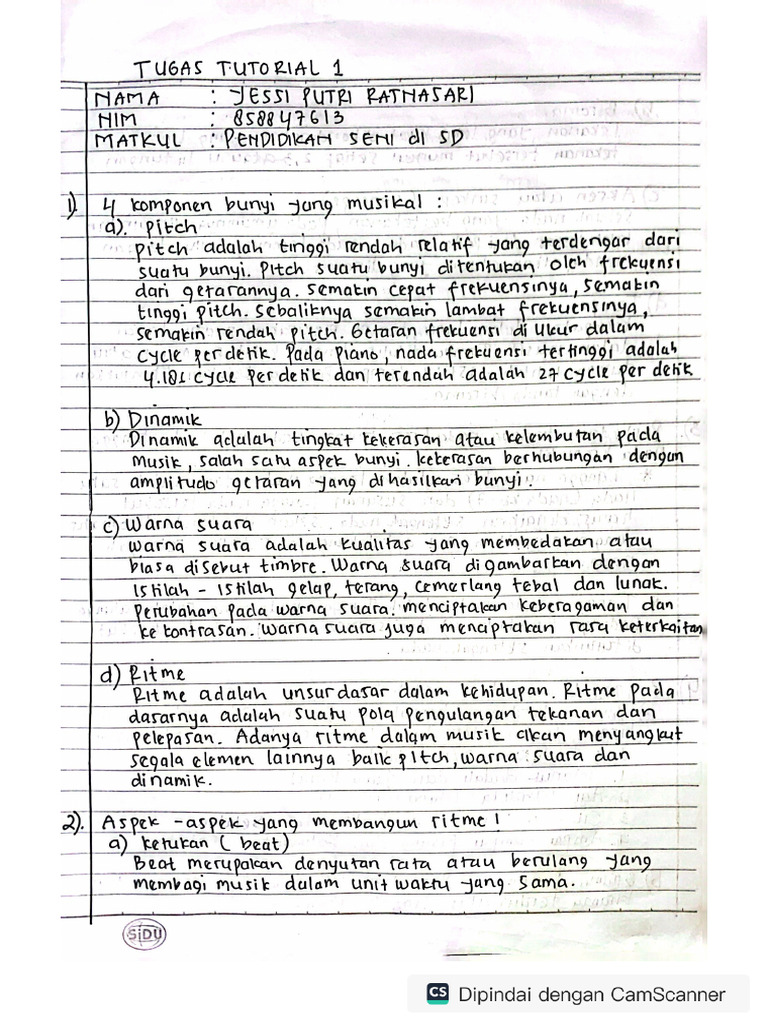 TUGAS TUTORIAL 1
NAMA : JESSI PUTRI RATNASARI
NIM : 858847613
MATKUL : PENDIDIKAN SENI di SD
1) 4 komponen bunyi yang musikal :
a). pitch
pitch adalah tinggi rendah relatif yang terdengar dari
suatu bunyi. Pitch suatu bunyi ditentukan oleh frekuensi
dari getarannya. Semakin cepat frekuensinya, semakin
tinggi pitch. Sebaliknya semakin lambat frekuensinya,
semakin rendah pitch. Getaran frekuensi di ukur dalam
cycle per detik. Pada piano, nada frekuensi tertinggi adalah
4.181 cycle per detik dan terendah adalah 27 cycle per detik
b) Dinamik
Dinamik adalah tingkat kekerasan atau kelembutan pada
musik, salah satu aspek bunyi. kekerasan berhubungan dengan
amplitudo getaran yang dihasilkan bunyi.
c) Warna suara
Warna suara adalah kualitas yang membedakan atau
biasa disebut timbre. Warna suara digambarkan dengan
istilah - istilah gelap, terang, cemerlang tebal dan lunak.
perubahan pada warna suara. menciptakan keberagaman dan
ke kontrasan. Warna suara juga menciptakan rasa keterkaitan
d) Ritme
Ritme adalah unsur dasar dalam kehidupan. Ritme pada
dasarnya adalah suatu pola pengulangan tekanan dan
pelepasan. Adanya ritme dalam musik akan menyangkut
segala elemen lainnya baik pitch, warna suara dan
dinamik.
2). Aspek - aspek yang membangun ritme !
a) ketukan ( beat)
Beat merupakan denyutan rata atau berulang yang
membagi musik dalam unit waktu yang sama.
SiDU
CS Dipindai dengan CamScanner